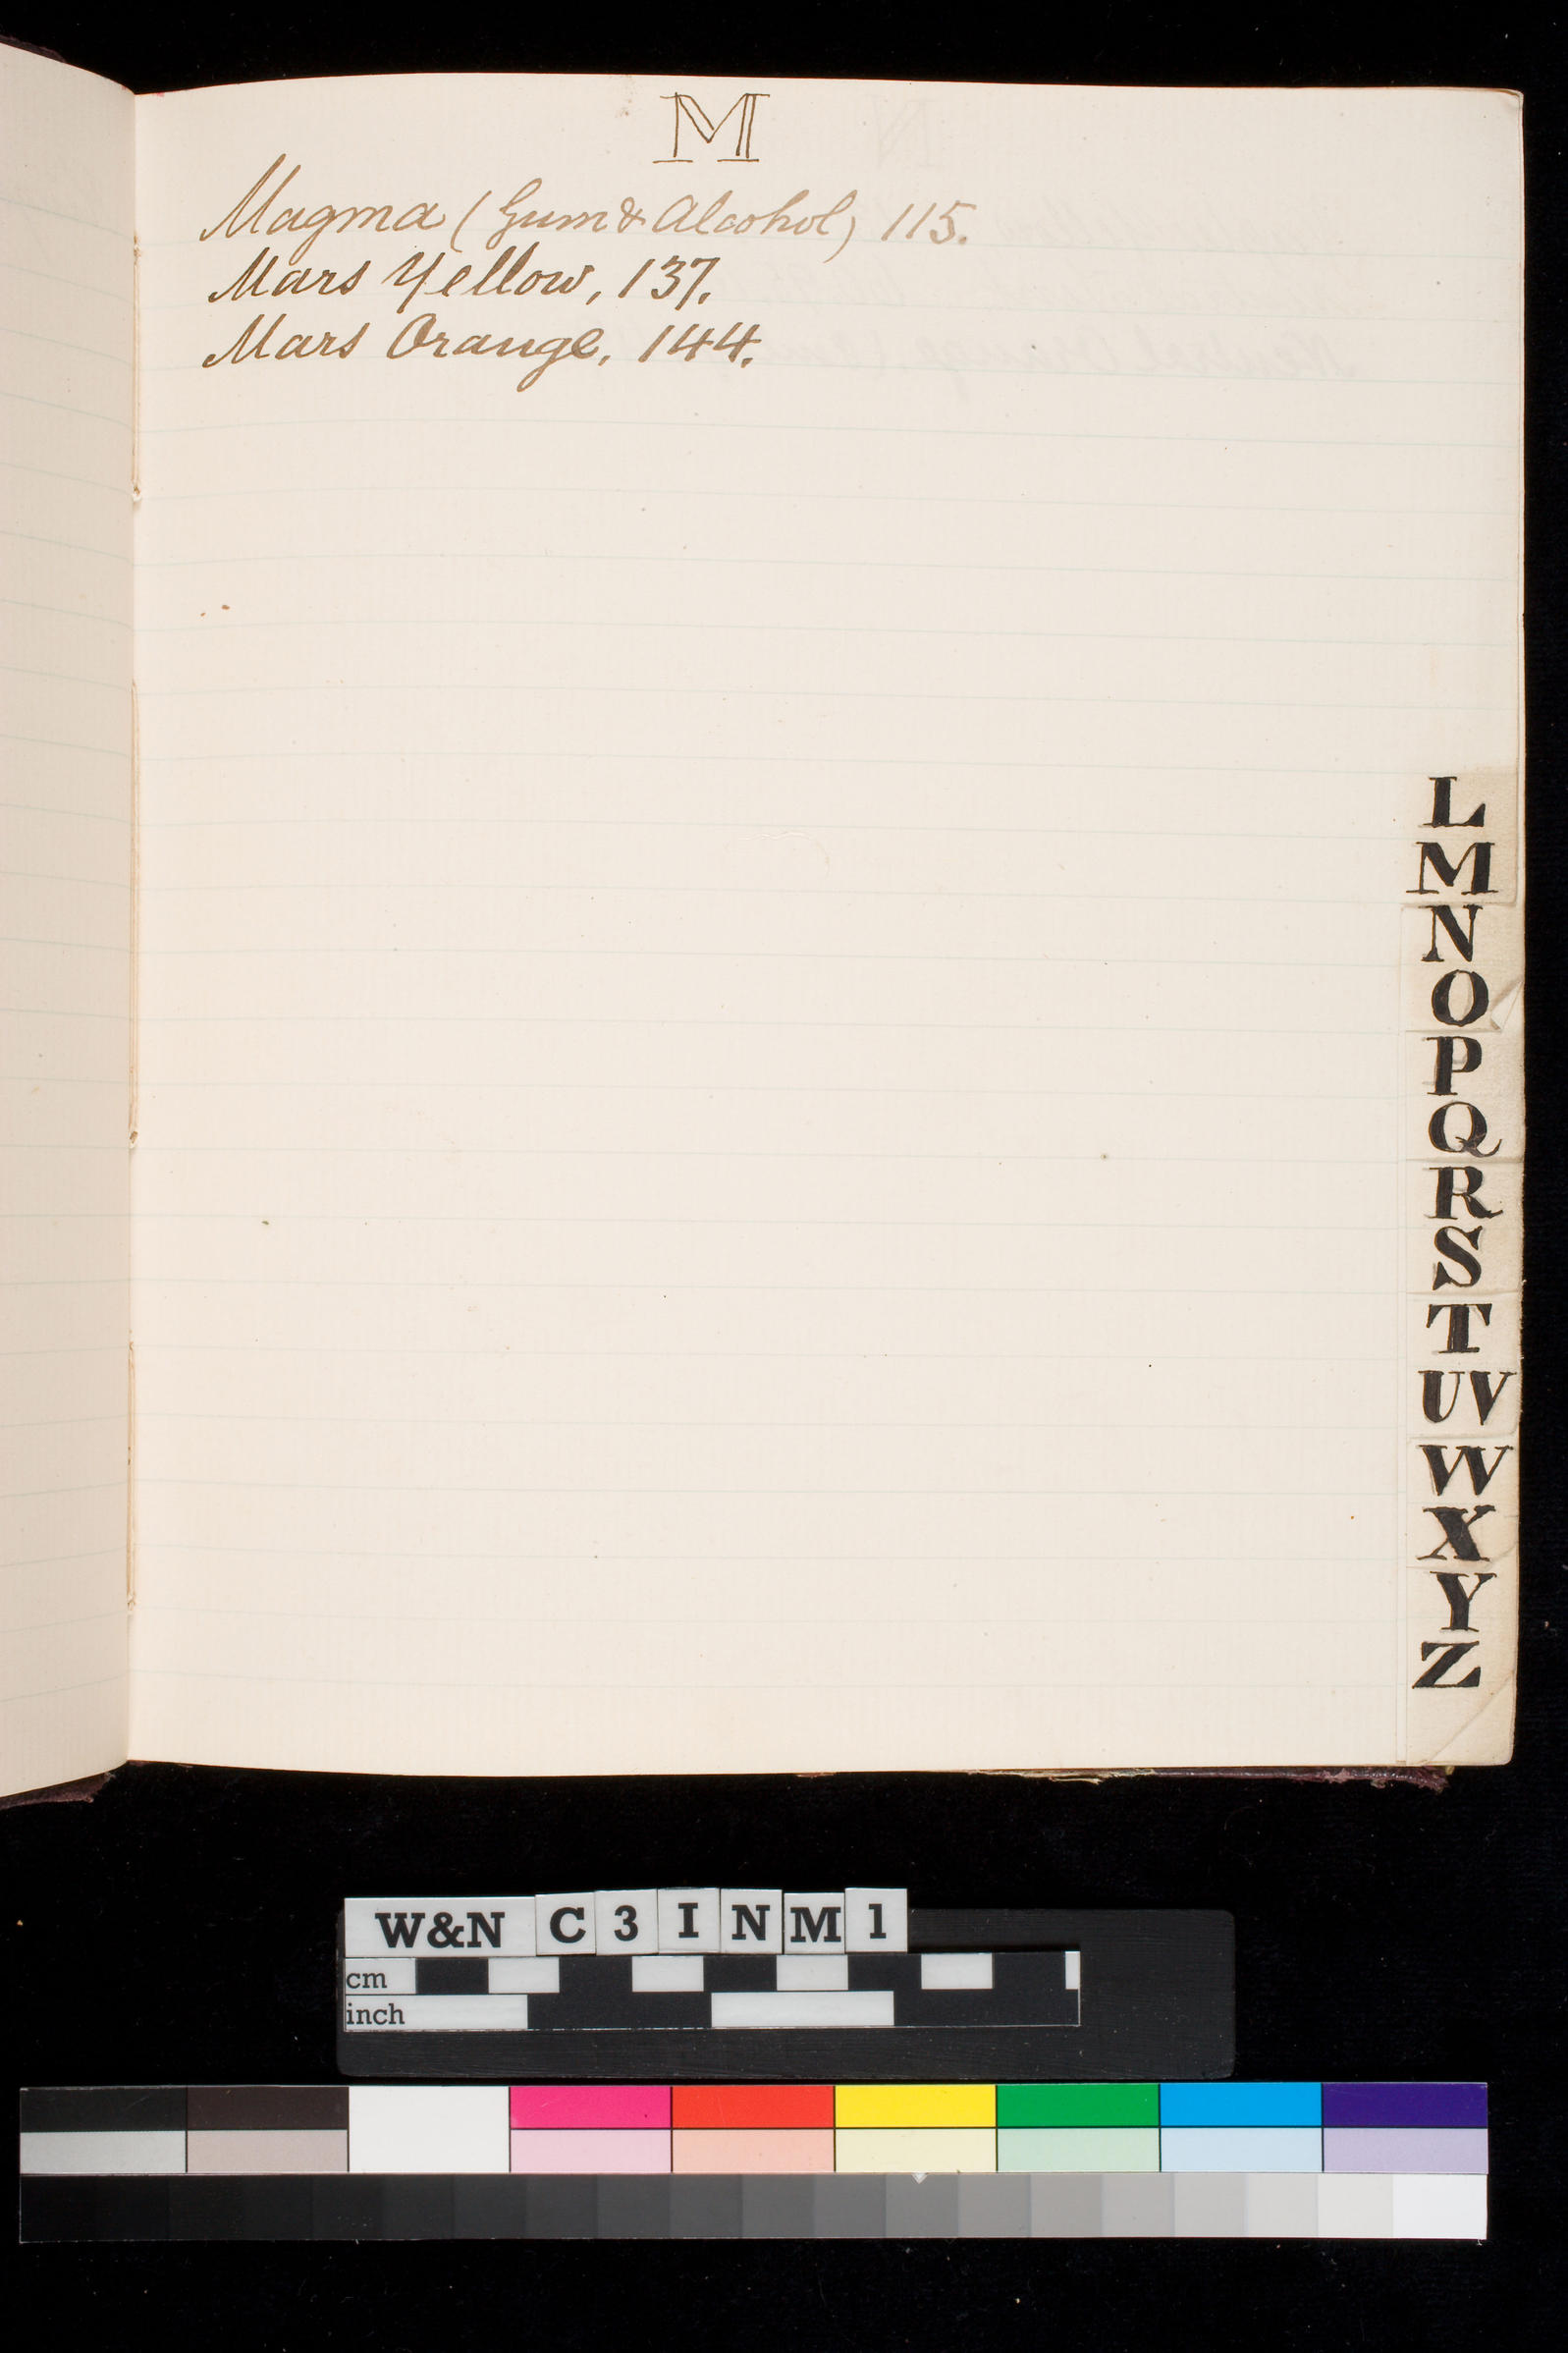 M
Magma (Gum & Alcohol) 115.
Mars Yellow, 137.
Mars Orange, 144.
L
M
N
O
P
Q
R
S
T
UV
W
X
Y
Z
W&N C 3 I N M 1
cm
inch